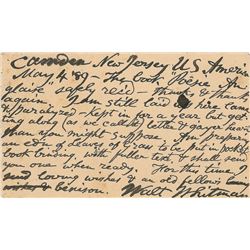 Camden New Jersey US America
May 4 '89 — The book "Poésie Anglaise" safely rec'd — thanks & thanks
again. I am still laid up here lame
& paralyzed — kept in for a year but getting
along (as we call it) better & gayer heart
than you might suppose. Am preparing
an ed'n of Leaves of Grass to be put in pocket
book binding, with fuller text & shall send
you one when ready. For this time I
send loving wishes & an old fellow's
benison. Walt Whitman